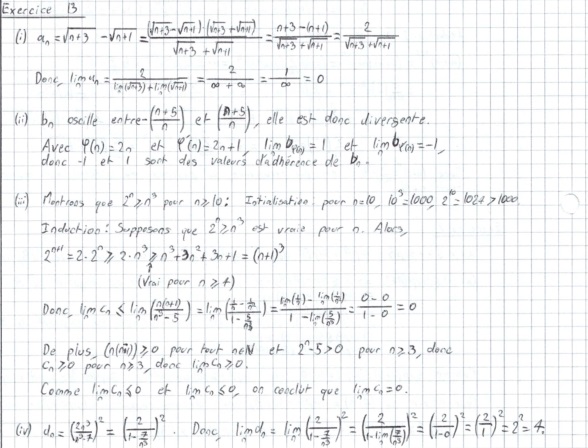 Exercice 13
(i) aₙ = √n+3 - √n+1 = ((√n+3 - √n+1)·(√n+3 + √n+1))/(√n+3 + √n+1) = (n+3-(n+1))/(√n+3 + √n+1) = 2/(√n+3 + √n+1)
Donc, lim aₙ = 2/(lim(√n+3) + lim(√n+1)) = 2/(∞ + ∞) = 1/∞ = 0
(ii) bₙ oscille entre -((n+5)/n) et ((n+5)/n), elle est donc divergente.
Avec φ(n) = 2n et φ'(n) = 2n+1, lim b_φ(n) = 1 et lim b_φ'(n) = -1,
donc -1 et 1 sont des valeurs d'adhérence de bₙ.
(iii) Montrons que 2ⁿ ≥ n³ pour n ≥ 10: Initialisation: pour n=10, 10³=1000, 2¹⁰=1024 > 1000.
Induction: Supposons que 2ⁿ ≥ n³ est vraie pour n. Alors,
2ⁿ⁺¹ = 2·2ⁿ ≥ 2·n³ ≥ n³ + 3n² + 3n + 1 = (n+1)³
(Vrai pour n ≥ 4)
Donc, lim cₙ ≤ lim((n(n+1))/(n³-5)) = lim((1/n - 1/n²)/(1 - 5/n³)) = (lim(1/n) - lim(1/n²))/(1 - lim(5/n³)) = (0-0)/(1-0) = 0
De plus, (n(n+1)) ≥ 0 pour tout n∈ℕ et 2ⁿ-5 > 0 pour n ≥ 3, donc
cₙ ≥ 0 pour n ≥ 3, donc lim cₙ ≥ 0.
Comme lim cₙ ≤ 0 et lim cₙ ≤ 0, on conclut que lim cₙ = 0.
(iv) dₙ = (2n³/(n³-7))² = (2/(1 - 7/n³))². Donc, lim dₙ = lim(2/(1 - 7/n³))² = (2/(1 - lim(7/n³)))² = (2/(1-0))² = (2/1)² = 2² = 4.